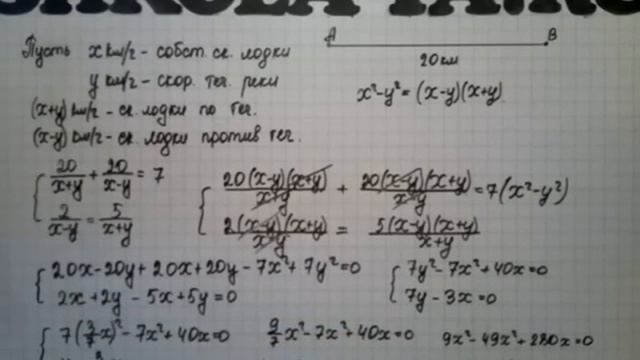 Пусть x км/ч - собст. ск. лодки
A B
20 км
y км/ч - скор. теч. реки
x² - y² = (x-y)(x+y)
(x+y) км/ч - ск. лодки по теч.
(x-y) км/ч - ск. лодки против теч.
{ 20/(x+y) + 20/(x-y) = 7
2/(x-y) = 5/(x+y)
{ 20(x-y)(x+y)/(x+y) + 20(x-y)(x+y)/(x-y) = 7(x²-y²)
2(x-y)(x+y)/(x-y) = 5(x-y)(x+y)/(x+y)
{ 20x-20y+20x+20y-7x²+7y²=0
2x+2y-5x+5y=0
{ 7y²-7x²+40x=0
7y-3x=0
{ 7(3/7x)²-7x²+40x=0 9/7x²-7x²+40x=0 9x²-49x²+280x=0